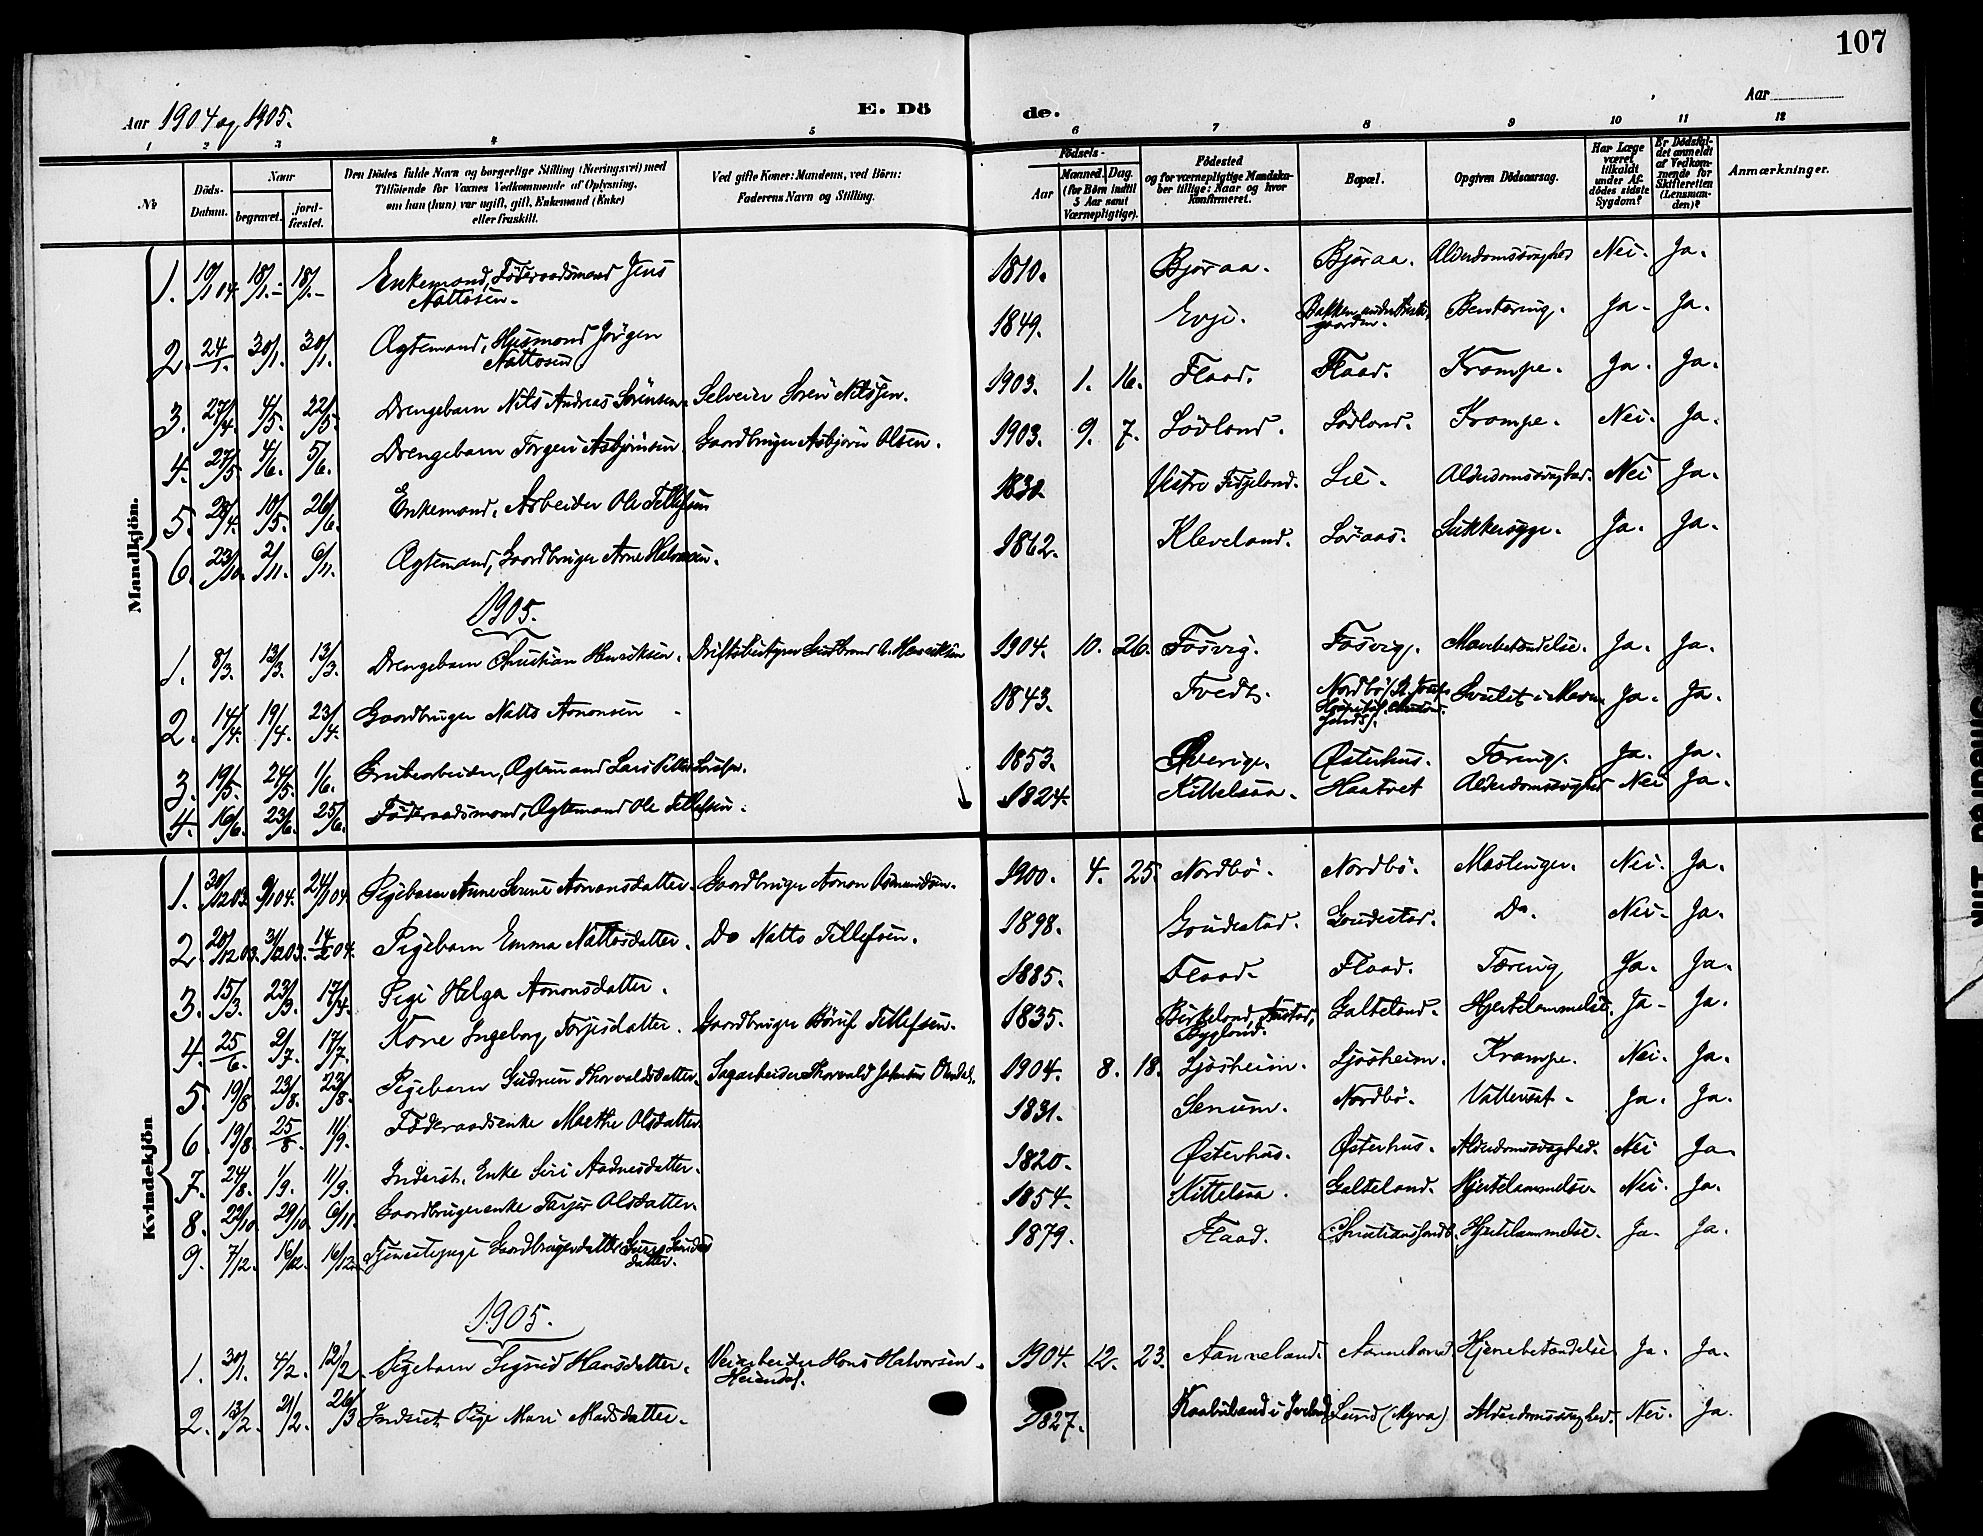 107
Aar 1904 og 1905. E. Dö de. Aar
1 2 3 4 5 6 7 8 9 10 11 12
No Döds-Datum. Naar begravet. jord-fæstet. Den Dödes fulde Navn og borgerlige Stilling (Næringsvei) med Tilföiende for Voxnes Vedkommende af Oplysning, om han (hun) var ugift, gift, Enkemand (Enke) eller fraskilt. Ved gifte Koner: Mandens, ved Börn: Faderens Navn og Stilling. Födsels- Aar Maaned. Dag. (for Börn indtil 5 Aar samt Værnepligtige). Födested og for værnepligtige Mandskaber tillige: Naar og hvor konfirmeret. Bopæl. Opgiven Dödsaarsag. Har Læge været tilkaldt under Afdödes sidste Sygdom? Er Dödsfaldet anmeldt af Vedkommende for Skifteretten (Lensmanden)? Anmærkninger.
Mandkjön.
1. 10/1 04. 18/1.- 18/1.- Enkemand, Föderaadsmand Jens Nattosen. 1810. Bjoraa. Bjoraa. Alderdomssvaghed Nei. Ja.
2. 24/1. 30/1. 30/1. Ægtemand, Husmand Jörgen Nattosen 1849. Evje. Bakken under Ja. Ja.
3. 27/4. 4/5. 22/5. Drengebarn Nils Andreas Sörensen. Selveier Sören Nilssen. 1903. 1. 16. Flaad. Flaad. Krampe. Ja. Ja.
4. 27/5. 4/6. 5/6. Drengebarn Torgeir Asbjörnsen. Gaardbruger Asbjörn Olsen. 1903. 9. 7. Lövland. Lövland. Krampe. Nei. Ja.
5. 28/4. 10/5. 26/6. Enkemand, Arbeider Ole Tellefsen 1830. Vestre Fidjeland. Lie. Alderdomssvaghed. Nei Ja.
6. 23/10. 2/11. 6/11. Ægtemand, Gaardbruger Arne Halvorsen. 1862. Kleveland. Löraas. Sukkersyge. Ja. Ja.
1905.
1. 8/3. 13/3. 13/3. Drengebarn Christian Henriksen. Driftsbestyrer Gudbrand Henriksen 1904. 10. 26. Fösvig. Fösvig. Mavebetændelse. Ja. Ja.
2. 14/4. 19/4. 23/4. Gaardbruger Natto Aanonsen 1843. Tvedt. Nordbö Ja. Ja.
3. 19/5. 24/5. 1/6. Grubearbeider, Ægtemand Lars Petter 1853. Sverige. Østerhus. Tæring. Ja. Ja.
4. 16/6. 23/6. 25/6. Föderaadsmand, Ægtemand Ole Tellefsen. 1824. Kittelsaa. Haatvet Alderdomssvaghed Nei Ja.
Kvindekjön
1. 30/12 03. 9/1 04. 24/1 04 Pigebarn Anne Serine Aanonsdatter. Gaardbruger Aanon Osmundsen. 1900. 4. 25. Nordbö. Nordbö. Mæslinger. Nei. Ja.
2. 20/12 03. 31/12 03. 14/2 04. Pigebarn Emma Nattosdatter. Do Natto Tellefsen. 1898. Goudestad. Goudestad. Do. Nei. Ja.
3. 15/3. 23/3. 17/4. Pige Helga Aanonsdatter. 1885. Flaad. Flaad. Tæring Ja. Ja.
4. 25/6. 2/7. 17/7. Kone Ingeborg Torjusdatter. Gaardbruger Böruf Tellefsen. 1835. Birkeland, Austad, Bygland. Galteland. Hjertelammelse. Ja. Ja.
5. 19/8. 23/8. 23/8. Pigebarn Gudrun Thorvaldsdatter. Sagarbeider Thorvald 1904. 8. 18. Ljosheim. Ljosheim. Krampe. Nei. Ja.
6. 19/8. 25/8. 11/9. Föderaadsenke Marthe Olsdatter 1831. Senum. Nordbö. Vattersot. Ja. Ja.
7. 24/8. 1/9. 11/9. Inderst. Enke Siri Aadnesdatter. 1820. Østerhus. Østerhus. Alderdomssvaghed. Nei Ja.
8. 22/10. 29/10. 6/11. Gaardbrugerenke Torjer Olsdatter. 1854. Kittelsaa. Galteland. Hjertelammelse. Nei. Ja.
9. 7/12. 16/12. 16/12. Tjenestepige Gaardbrugerdatter 1879. Flaad. Christianssand. Hjertelammelse. Ja. Ja.
1905.
1. 30/1. 4/2. 12/2. Pigebarn Sigrid Hansdatter. Veiarbeider Hans Halvorsen Heiendal. 1904. 12. 23. Aanneland. Aanneland. Hjernebetændelse Ja. Ja.
2. 13/2. 21/2. 26/3 Inderst. Pige Mari Madsdatter. 1827. Kaabuland i Iveland Lund (Myra) Alderdomssvaghed. Nei. Ja.